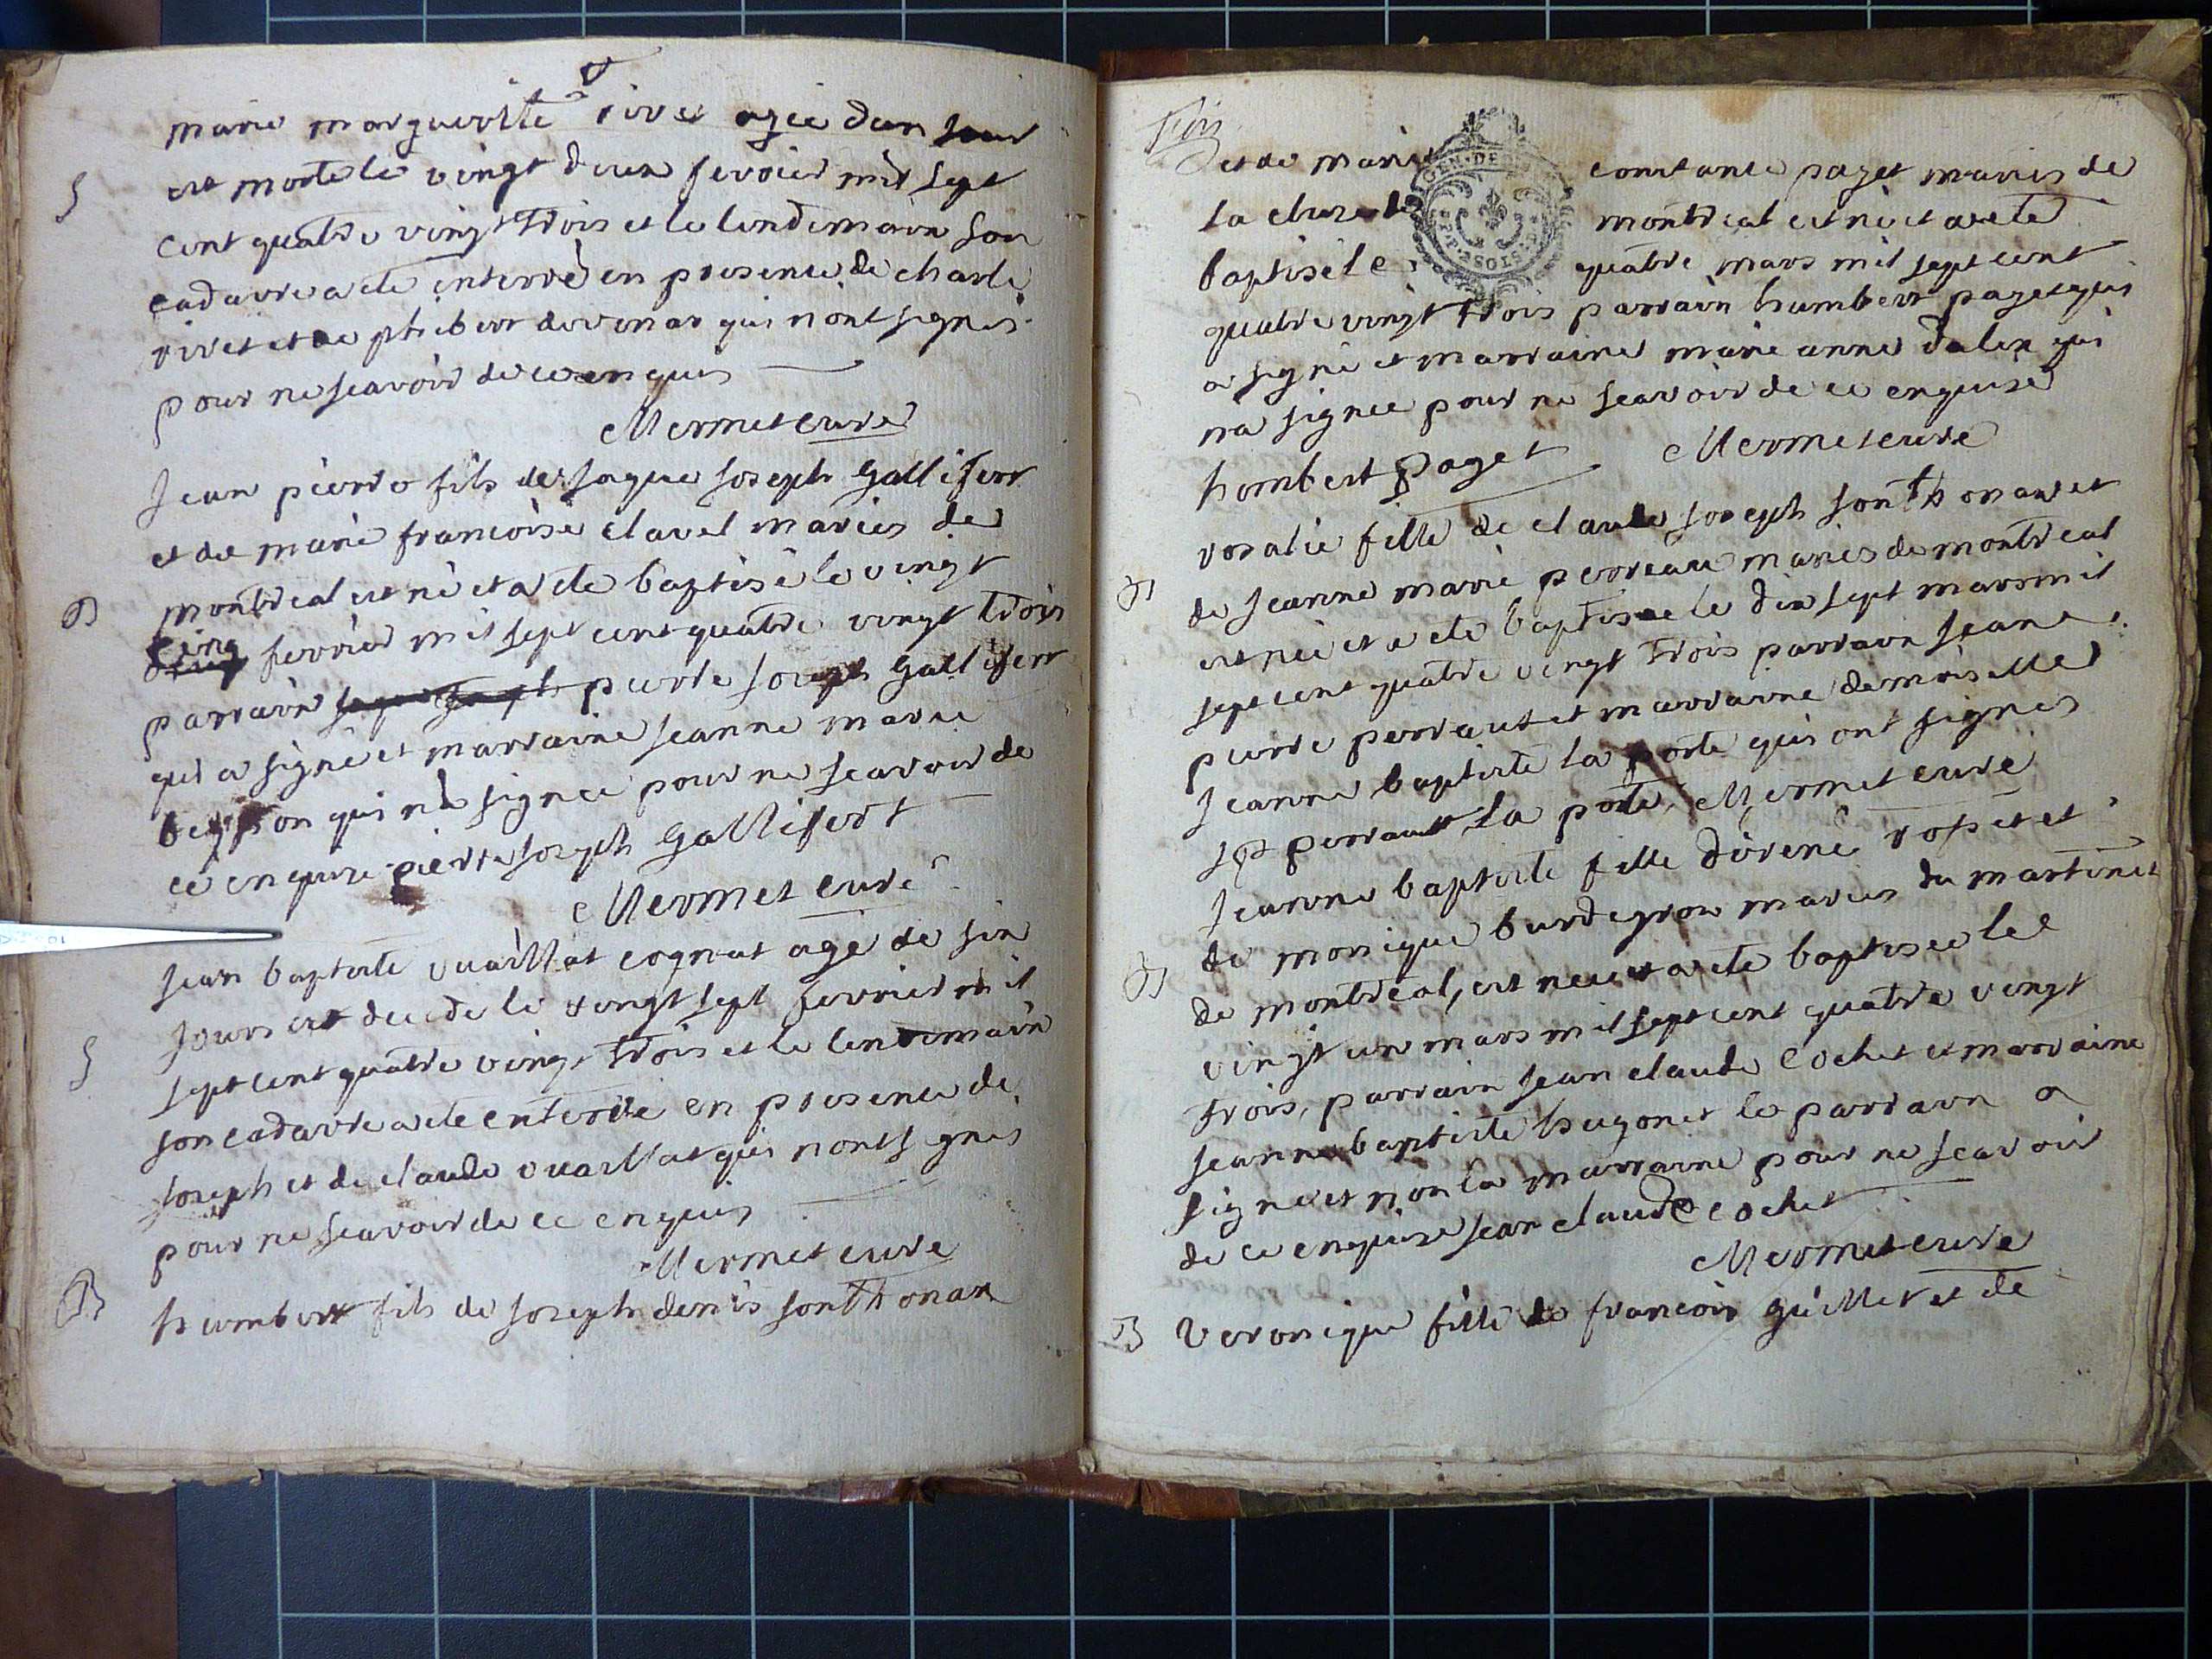 marie marguerite rivet agée dun jour
S est morte le vingt deux fevrier mil sept
cent quatre vingt trois et le lendemain son
cadavre a ete interré en presence de charle
rivet et de philibert qui nont signés
pour ne scavoir de ce enquis
Mermet curé
Jean pierre fils de jaque joseph Gallifert
et de marie francoise clavel mariés de
B montreal est né et a ete baptisé le vingt
cinq fevrier mil sept cent quatre vingt trois
parrain pierre joseph Gallifert
qui a signé et marraine jeanne marie
qui na signée pour ne scavoir de
ce enquise pierre joseph Gallifert
Mermet curé
jean baptiste vuaillat cognat agé de six
S jours est decede le vingt sept fevrier mil
sept cent quatre vingt trois et le lendemain
son cadavre a ete enterré en presence de
joseph et de claude vuaillat qui nont signés
pour ne scavoir de ce enquis
Mermet curé
B humbert fils de joseph denis sonthonax
trois
et de marie constance paget mariés de
la cluse de montreal est né et a ete
baptisé le quatre mars mil sept cent
quatre vingt trois parrain humbert paget qui
a signé et marraine marie anne dalex qui
na signée pour ne scavoir de ce enquise
humbert paget Mermet curé
rosalie fille de claude joseph sonthonax et
B de jeanne marie perreau mariés de montreal
est née et a ete baptisee le dix sept mars mil
sept cent quatre vingt trois parrain jean
pierre perraut et marraine demoiselle
jeanne baptiste la porte qui ont signés
jp perrault la porte Mermet curé
jeanne baptiste fille direné et
de monique mariés du martinet
B de montreal, est nee et a ete baptisee le
vingt un mars mil sept cent quatre vingt
trois, parrain jean claude cochet et marraine
jeanne baptiste hugonet le parrain a
signe et non la marraine pour ne scavoir
de ce enquise jean claude cochet
Mermet curé
B veronique fille de francois guillet et de